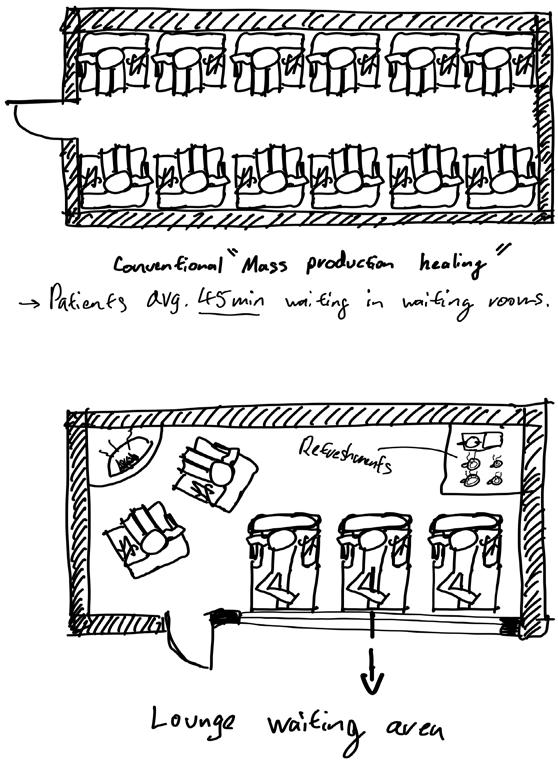 Conventional "Mass production healing"
→ Patients avg. 45min waiting in waiting rooms.
Refreshments
Lounge waiting area